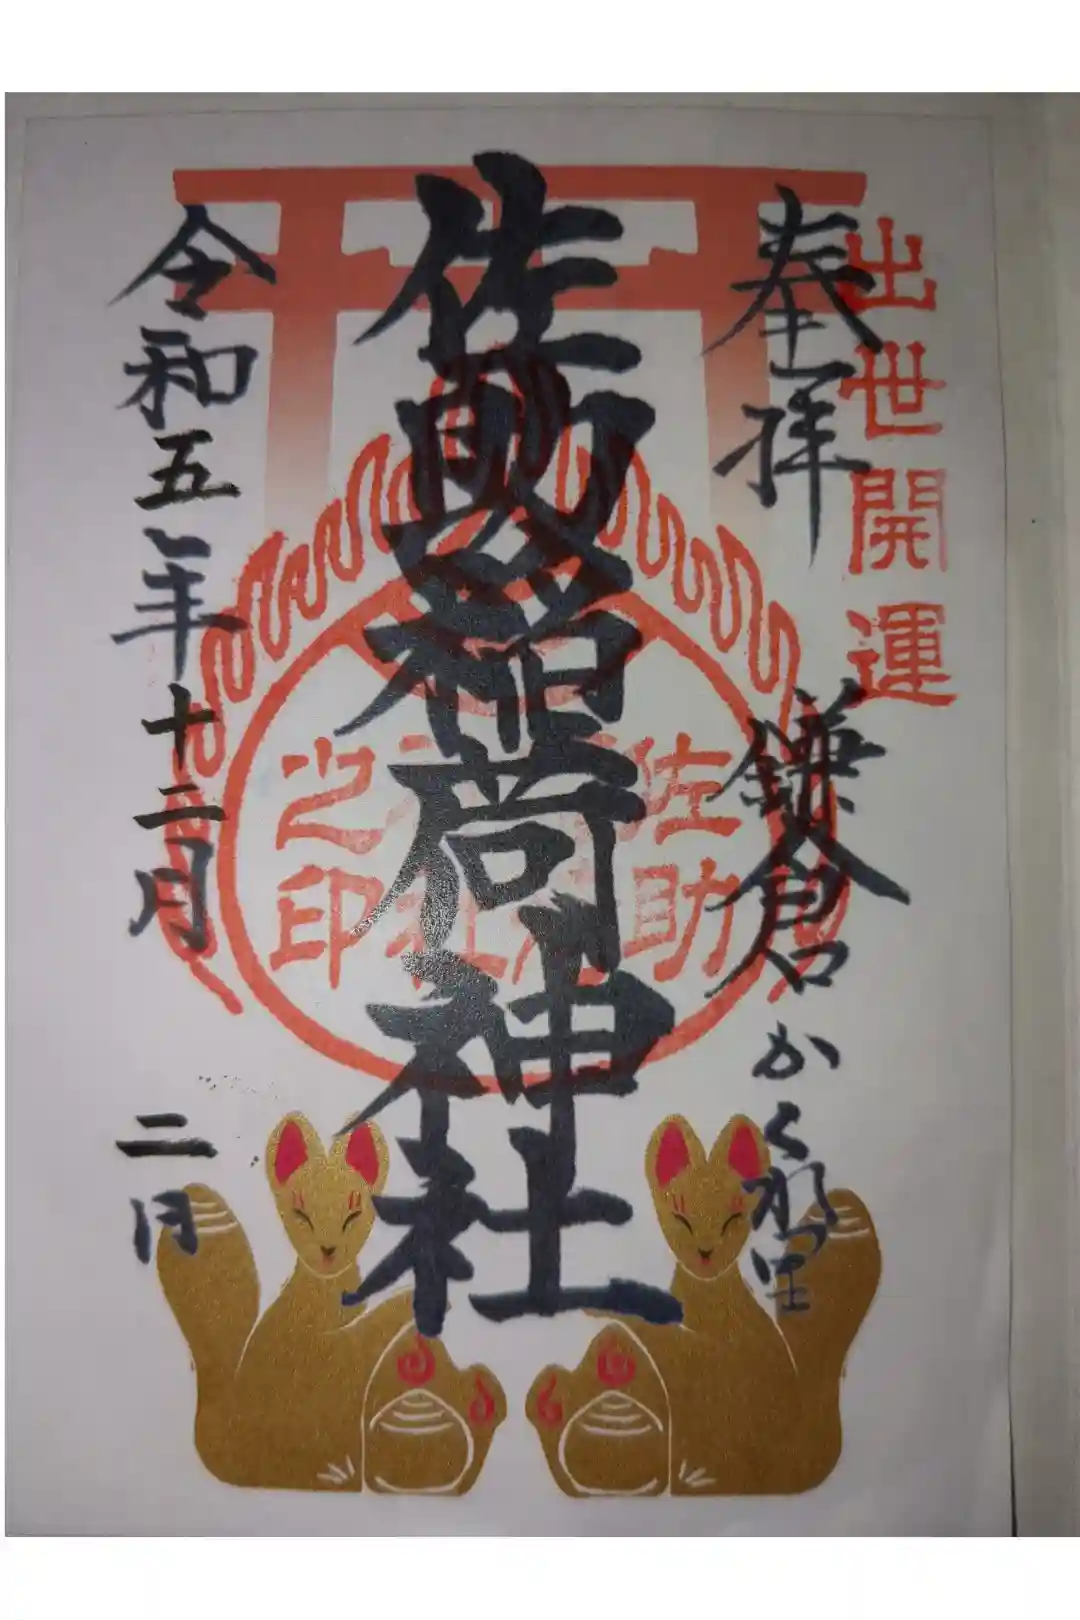 出世開運
奉拝 鎌倉かくれ里
佐助稲荷神社
佐助
之印
令和五年十二月 二日